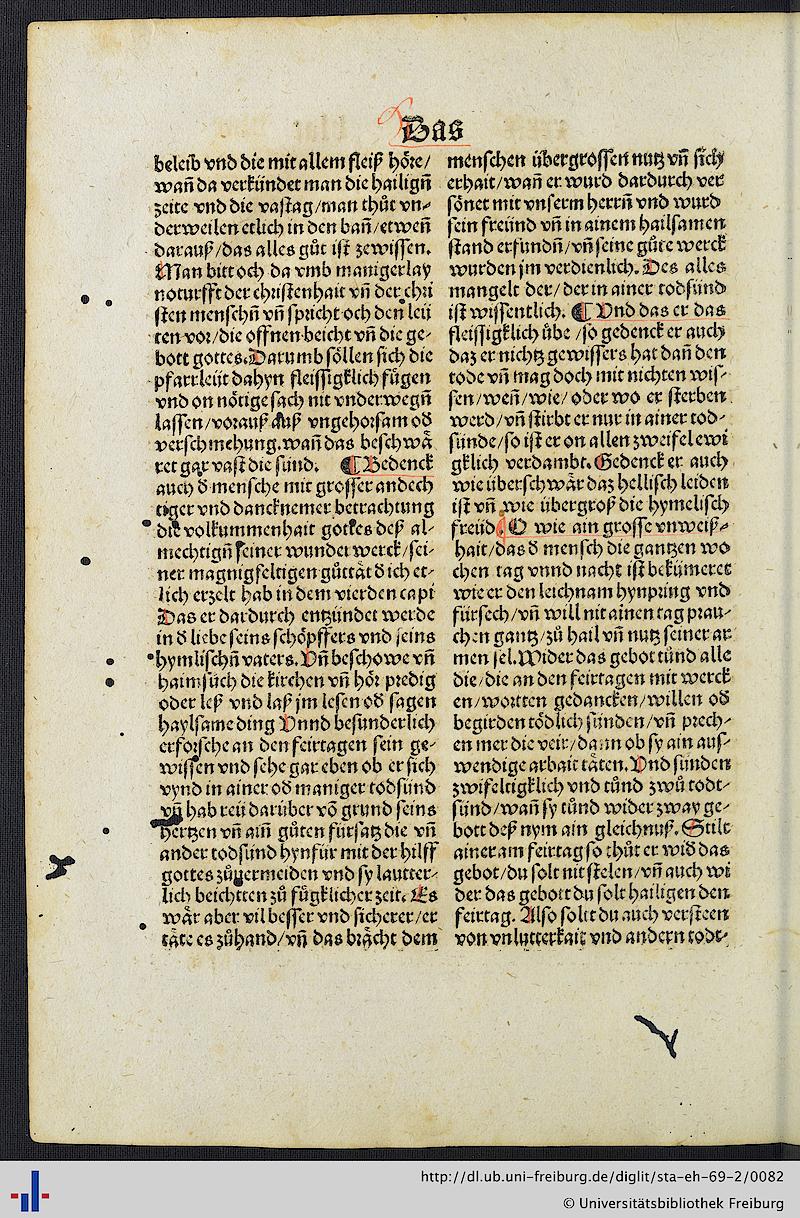 Das
beleib vnd die mit allem fleiß hőre/
wañ da verkündet man die hailigñ
zeite vnd die vastag/man thůt vn⸗
derweilen etlich in den bañ/etweñ
darauß/das alles gůt ist zewissen.
Man bitt och da vmb manigerlay
noturfft der christenhait vñ der chri
sten menschñ vñ spricht och den leü
ten vor/die offnen beicht vñ die ge⸗
bott gottes. Darumb sőllen sich die
pfarrleüt dahyn fleissigklich fůgen
vnd on nőtige sach nit vnderwegñ
lassen/vorauß auß vngehorsam oď
verschmehung. wañ das beschwä
ret gar vast die sünd. ¶ Bedenck
auch ď mensche mit grosser andech
tiger vnd dancknemer betrachtung
die volkummenhait gottes deß al⸗
mechtigñ seiner wunder werck/sei⸗
ner magnigfeltigen gůttät ď ich et⸗
lich erzelt hab in dem vierden capi
Das er dardurch entzündet werde
in ď liebe seins schőpffers vnd seins
hymlischñ vaters. Vñ beschowe vñ
haimsůch die kirchen vñ hőr predig
oder leß vnd laß jm lesen oď sagen
haylsame ding Vnnd besunderlich
erforsche an den feirtagen sein ge⸗
wissen vnd sehe gar eben ob er sich
vynd in ainer oď maniger todsünd
vñ hab reü darüber võ grund seins
hertzen vñ aiñ gůten fürsatz die vñ
ander todsünd hynfür mit der hilff
gottes zůuermeiden vnd sy lautter⸗
lich beichtten zů fůgklicher zeit. Es
wär aber vil besser vnd sicherer/er
täte es zůhand/vñ das brächt dem
menschen übergrossen nutz vñ sich
erhait/wañ er wurd dardurch ver
sőnet mit vnserm herrñ vnd wurd
sein freünd vñ in ainem hailsamen
stand erfundñ/vñ seine gůte werck
wurden jm verdienlich. Des alles
mangelt der/der in ainer todsünd
ist wissentlich. ¶ Vnd das er das
fleissigklich übe/so gedenck er auch
daz er nichtz gewissers hat dañ den
tode vñ mag doch mit nichten wis⸗
sen/weñ/wie/oder wo er sterben
werd/vñ stirbt er nur in ainer tod⸗
sünde/so ist er on allen zweifel ewi
gklich verdambt. Gedenck er auch
wie überschwär daz hellisch leiden
ist vñ wie übergroß die hymelisch
freüd. O wie ain grosse vnweiß⸗
hait/das ď mensch die gantzen wo
chen tag vnnd nacht ist bekümeret
wie er den leichnam hynpring vnd
fürsech/vñ will nit ainen tag prau⸗
chen gantz/zů hail vñ nutz seiner ar
men sel. Wider das gebot tůnd alle
die/die an den feirtagen mit werck
en/wortten gedancken/willen oď
begirden tődlich sünden/vñ prech⸗
en mer die veir/dann ob sy ain aus⸗
wendige arbait täten. Vnd sünden
zwifeltigklich vnd tůnd zwů todt⸗
sünd/wañ sy tůnd wider zway ge⸗
bott deß nym ain gleichnuß. Stilt
ainer am feirtag so thůt er wiď das
gebot/du solt nit stelen/vñ auch wi
der das gebott du solt hailigen den
feirtag. Also solt du auch versteen
von vnlutterkait vnd andern todt⸗
http://dl.ub.uni-freiburg.de/diglit/sta-eh-69-2/0082
© Universitätsbibliothek Freiburg